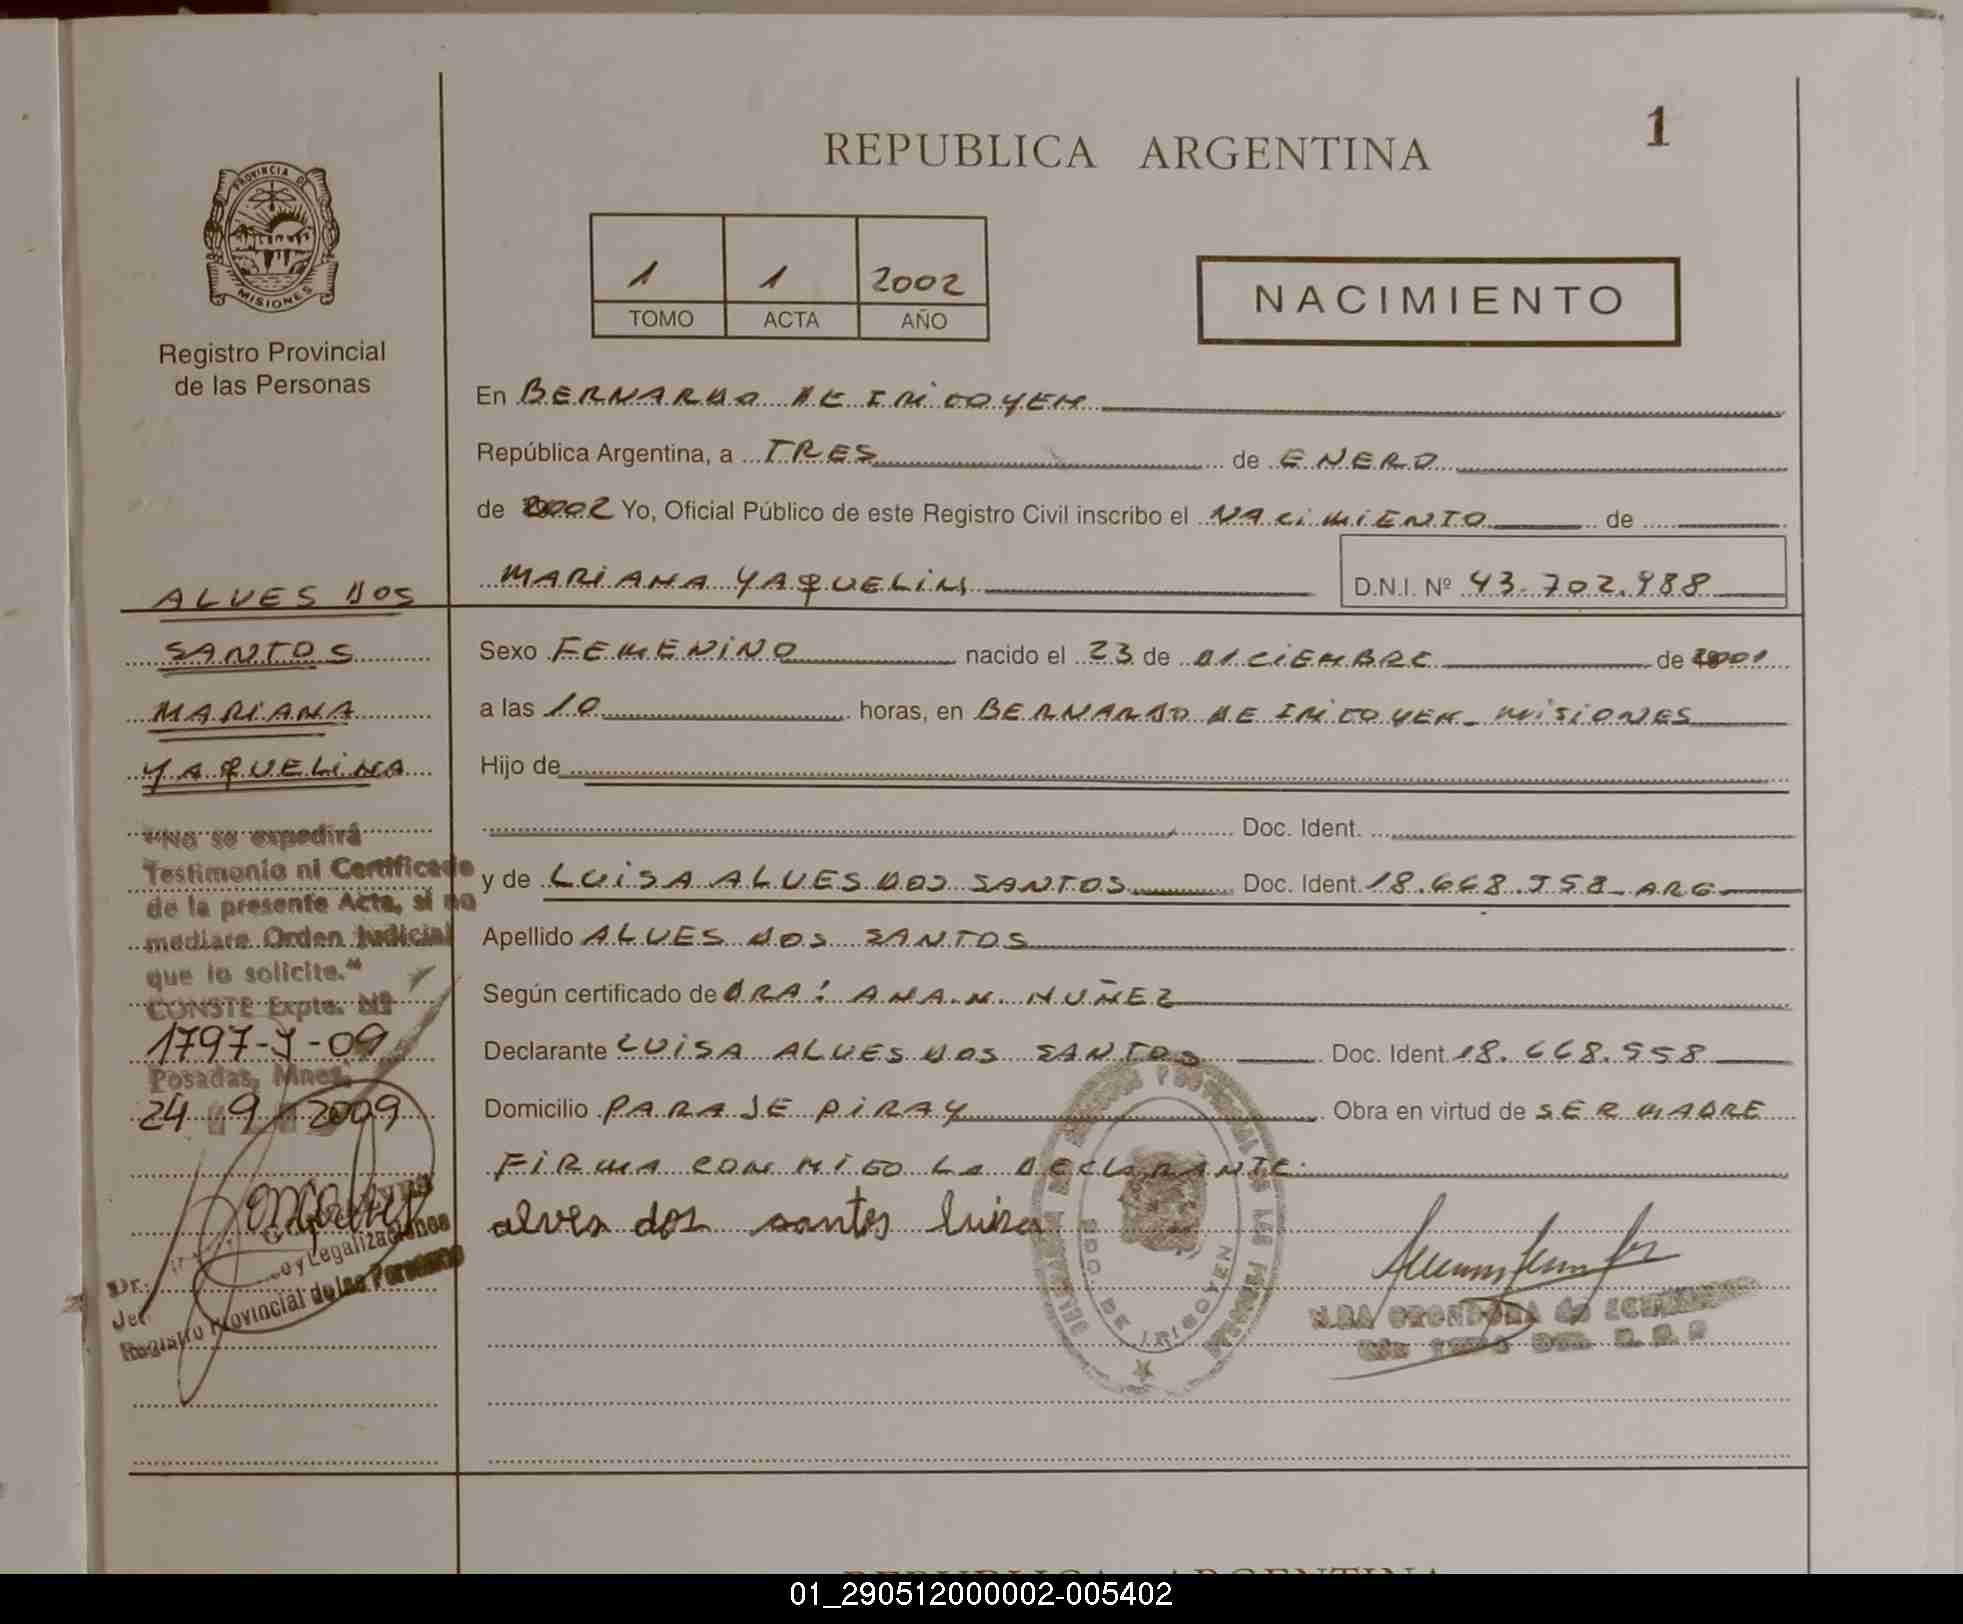 1
REPUBLICA ARGENTINA
PROVINCIA DE
MISIONES
Registro Provincial
de las Personas
1 1 2002
TOMO ACTA AÑO
NACIMIENTO
En BERNARDO DE IRIGOYEN
República Argentina, a TRES de ENERO
de 2002 Yo, Oficial Público de este Registro Civil inscribo el NACIMIENTO de
MARIANA YAQUELIN D.N.I. Nº 43.702.988
ALVES DOS
SANTOS
MARIANA
YAQUELINA
"No se expedirá
Testimonio ni Certificado
de la presente Acta, si no
mediare Orden Judicial
que lo solicite."
CONSTE Expte. Nº
1797-Y-09
Posadas, Mnes.
24 9 2009
Dr.
y Legalizaciones
Registro Provincial de las Personas
Sexo FEMENINO nacido el 23 de DICIEMBRE de 2001
a las 10 horas, en BERNARDO DE IRIGOYEN - MISIONES
Hijo de
Doc. Ident.
y de LUISA ALVES DOS SANTOS Doc. Ident. 18.668.558 - ARG
Apellido ALVES DOS SANTOS
Según certificado de DRA: ANA. N. NUÑEZ
Declarante LUISA ALVES DOS SANTOS Doc. Ident. 18.668.558
Domicilio PARAJE PIRAY Obra en virtud de SER MADRE
FIRMA CONMIGO LA DECLARANTE.
alves dos santos luisa
BDO. DE IRIGOYEN
REPUBLICA ARGENTINA
01_290512000002-005402